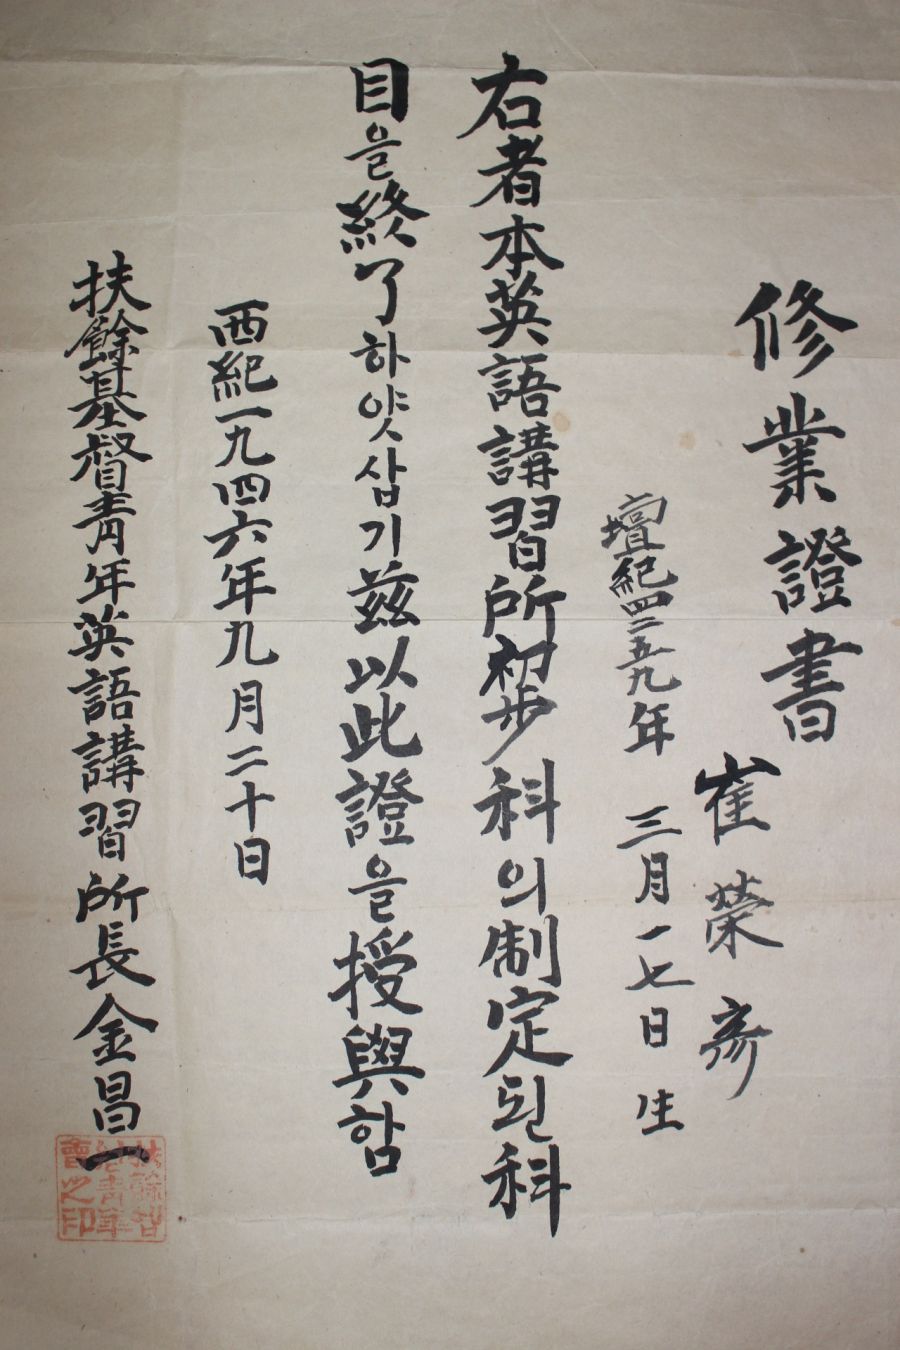 修業證書
崔榮彥
壇紀四二五九年 三月一七日 生
右者本英語講習所初步科의制定된科
目을終了하얏삼기茲以此證을授與함
西紀一九四六年九月二十日
扶餘基督青年英語講習所長金昌一
會之印